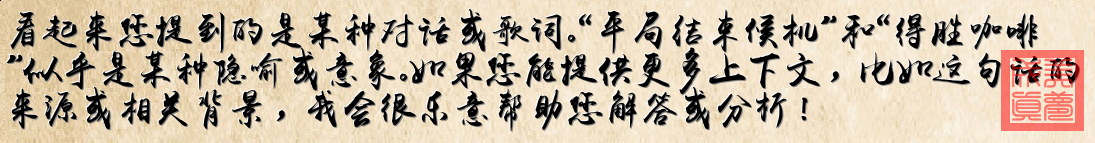 看起来您提到的是某种对话或歌词。“平局结束候机”和“得胜咖啡
”似乎是某种隐喻或意象。如果您能提供更多上下文，比如这句话的
来源或相关背景，我会很乐意帮助您解答或分析！